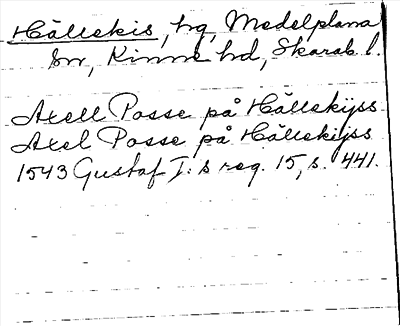 Hällekis, hg, Medelplana
sn, Kinne hd, Skarab. l.
Axell Posse på Hällekijss
Axel Posse på Hällekijss
1543 Gustaf I:s reg. 15, s. 441.